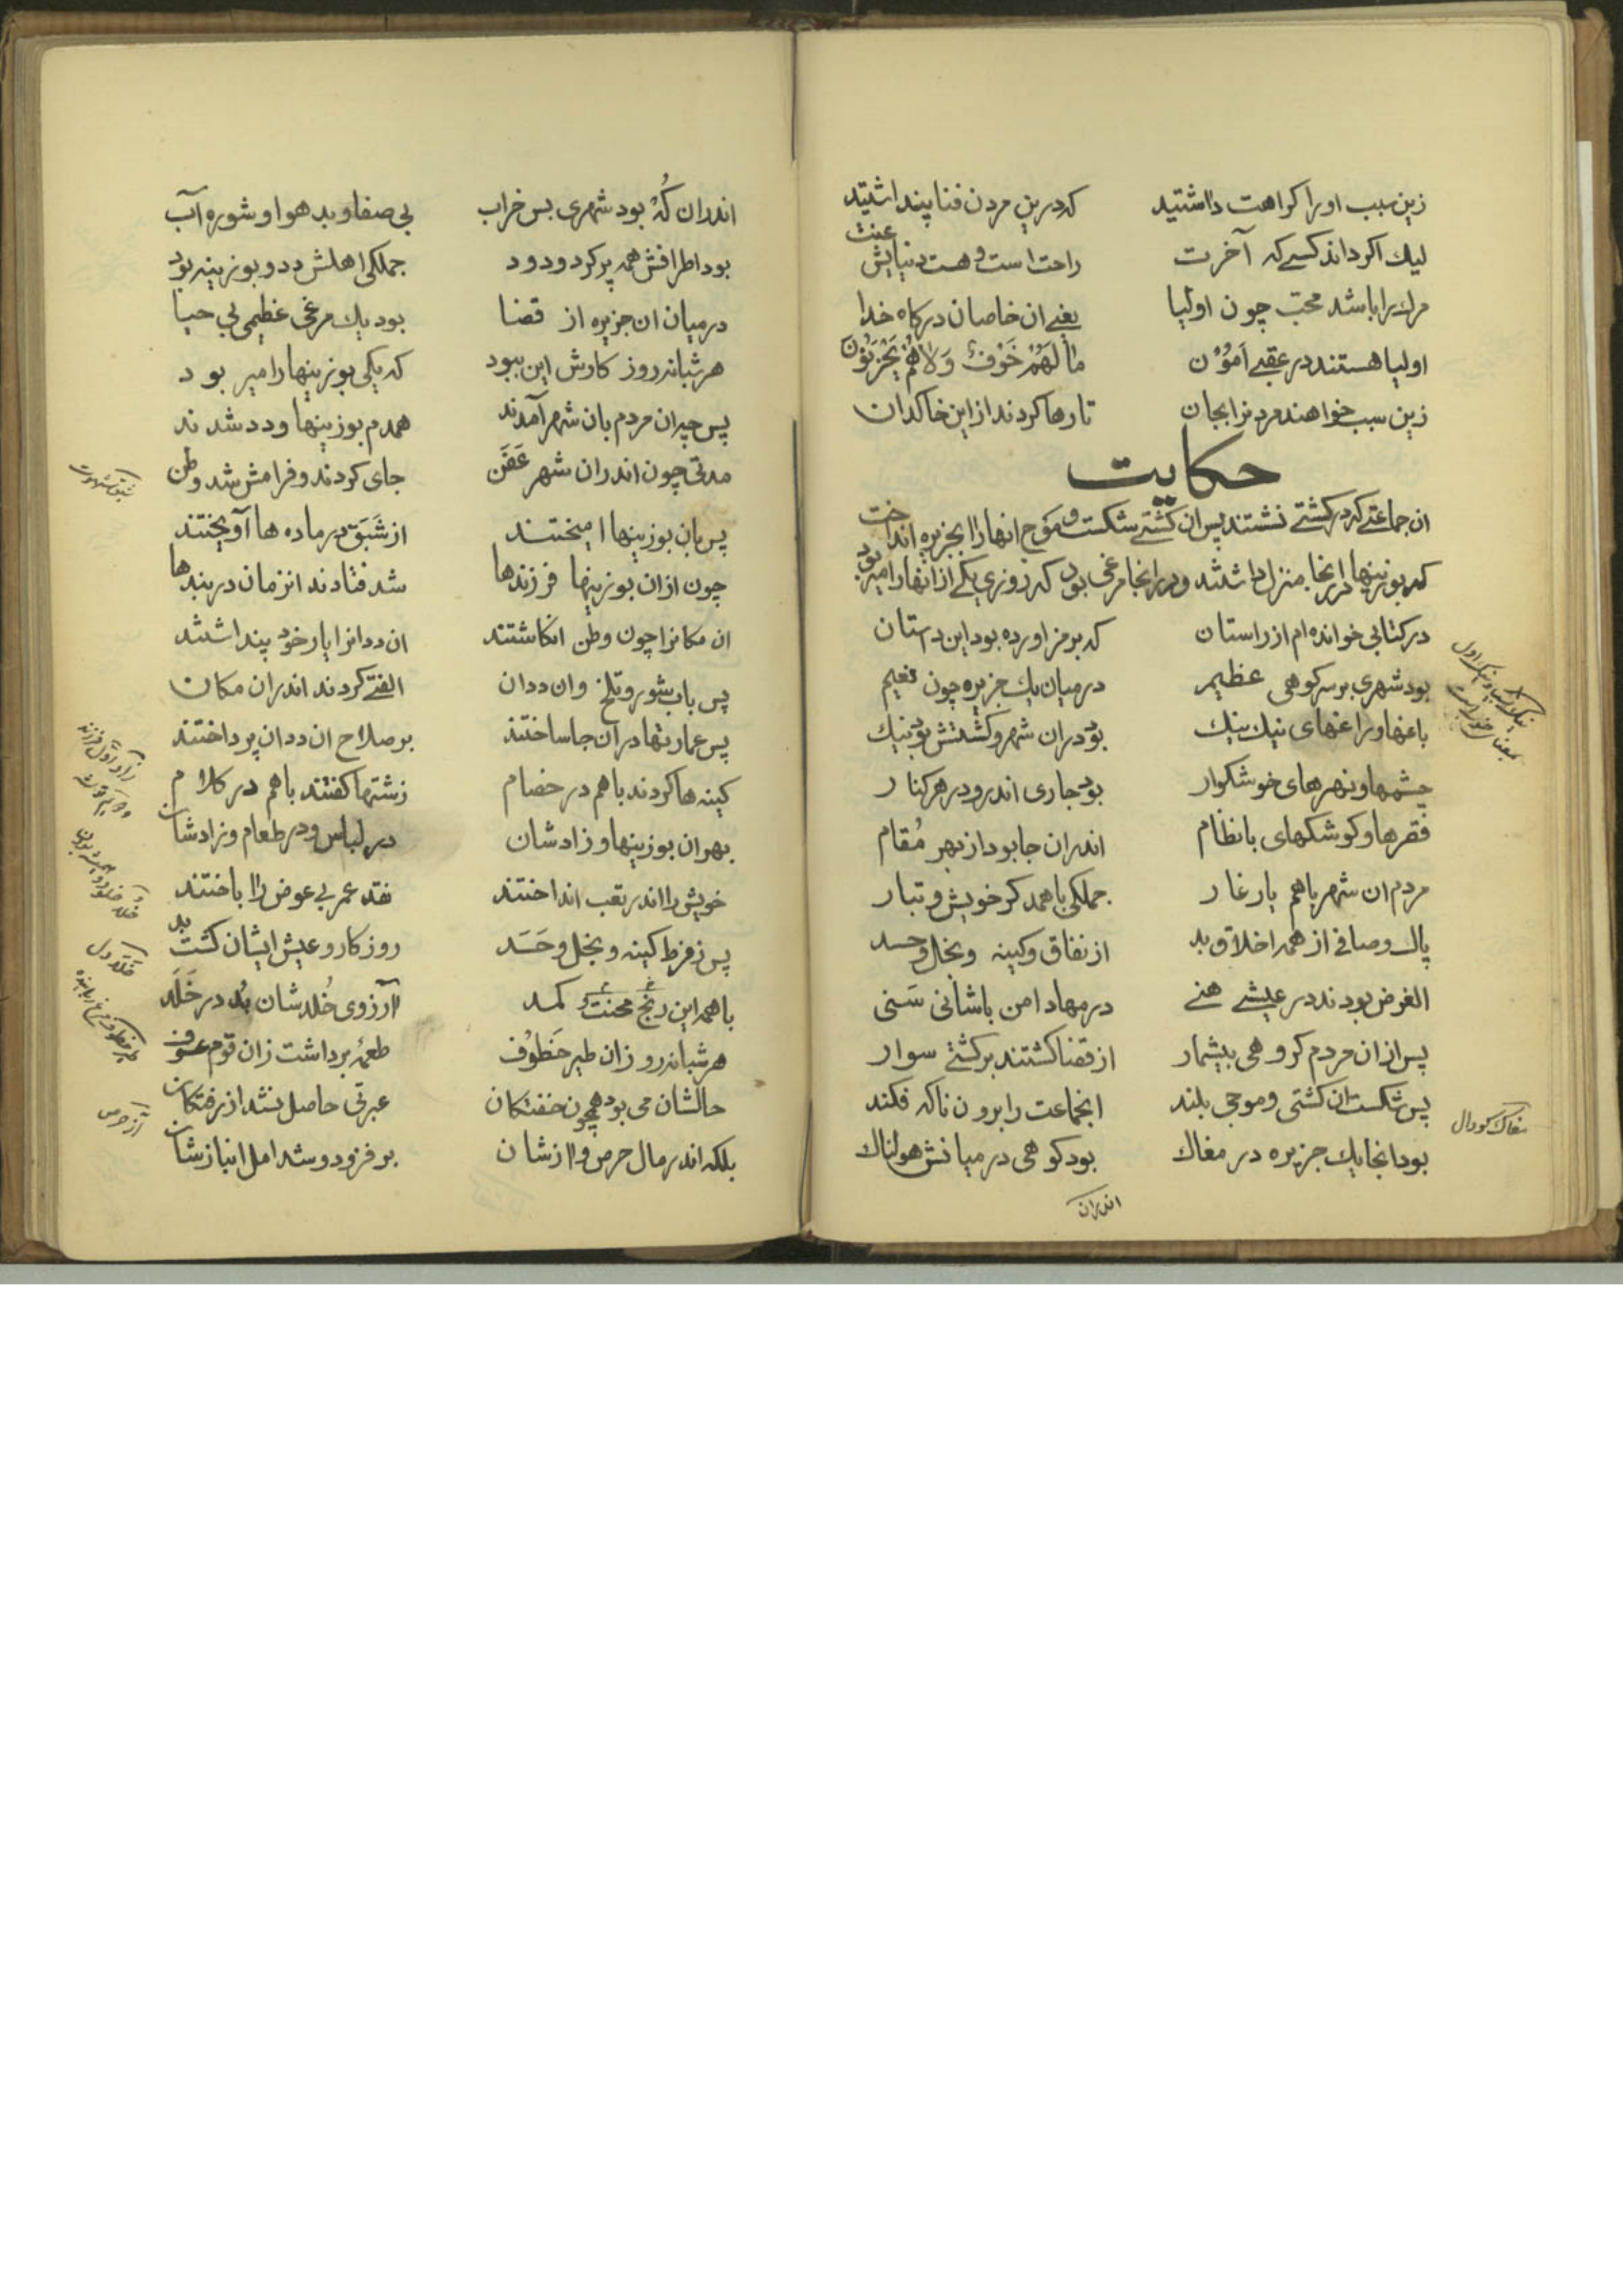 زین سبب او را کراهت داشتید که درین مردن فنا پنداشتید
لیك اکر داند کسے که آخرت راحت است و هست دنیایش عنت
مرك را باشد محبّ چون اولیا یعنے ان خاصان درکاه خدا
اولیا هستند در عقبے اَمَنُوْن ما لَهُمْ خَوْفٌ وَلا هُمْ یَحْزَنُوْن
زین سبب خواهند مردنرا بجان تا رها کردند از این خاکدان
حکایت
ان جماعتے که در کشتے نشتند پس ان کشتے شکست و موج انها را بجزیره انداخت
که بوزینها درانجا منزل داشتند و در انجا مرغی بود که روزی یکے از انها را میربود
در کتابی خوانده ام از راستان که برمز اورده بود این داستان
بود شهری بر سر کوهی عظیم در میان یك جزیره چون نعیم
باغها و راغهای نیك نیك بود دران شهر و کشتش بود نیك
چشمها و نهرهای خوشکوار بود جاری اندرو در هر کنار
قصرها و کوشکهای بانظام اندران جا بود از بهر مُقام
مردم ان شهر باهم یار غار جملکی باهمدکر خویش و تبار
پاك و صافی از همه اخلاق بد از نفاق و کینه و بخل و حسد
الغرض بودند در عیشے هنے در مهاد امن باشانی سَنی
پس ازان مردم کروهی بیشمار از قضا کشتند بر کشتے سوار
پس شکست ان کشتی و موجی بلند انجماعت را برون ناکه فکند
بود انجا یك جزیره در مغاك بود کوهی در میانش هولناك
اندران
مغاك کودال
اندران کُهْ بود شهری بس خراب بی صفا و بد هوا و شوره آب
بود اطرافش همه پر کرد و دود جملکی اهلش دد و بوزینه بود
در میان ان جزیره از قضا بود یك مرغی عظیمی بی حیا
هر شبانه روز کارش این ببود که یکی بوزینها را میربود
پس حیران مردم بان شهر آمدند همدم بوزینها و دد شدند
مدتی چون اندران شهر عَفَن جای کردند و فرامش شد وطن
پس بان بوزینها امیختند از شَبَق در ماده ها آویختند
چون ازان بوزینها فرزندها شد فتادند انزمان در بندها
ان مکانرا چون وطن انکاشتند ان ددانرا یار خود پنداشتند
پس باب شور و تلخ و ان ددان الفتے کردند اندران مکان
پس عمارتها در آن جا ساختند بر صلاح ان ددان پرداختند
کینه ها کردند باهم در خصام زشتها کفتند باهم در کلام
بهر ان بوزینها و زادشان در لباس و در طعام و زادشان
خویش را اندر تعب انداختند نقد عمر بی عوض را باختند
پس ز فرط کینه و بخل و حَسَد روزکار و عیش ایشان کشت بد
با همه این رنج و محنت و کمد آرزوی خُلد شان بُد در خَلَد
هر شبانه روز زان طیر خَطوُف طعمهٔ برداشت زان قوم عسوف
حالشان می بود همچون خفتکان عبرتی حاصل نشد از رفتکان
بلکه اندر مال حرص و ازشان بر فزود و شد امل انبازشان
شبق شهوت
آز حرص